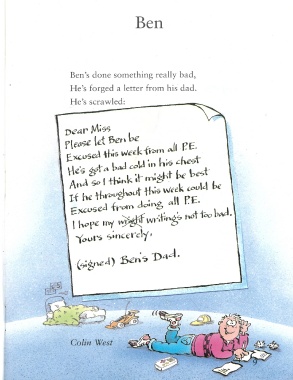 Ben
Ben's done something really bad,
He's forged a letter from his dad.
He's scrawled:
Dear Miss
Please let Ben be
Excused this week from all P.E.
He's got a bad cold in his chest
And so I think it might be best
If he throughout this week could be
Excused from doing, all P.E.
I hope my wright writing's not too bad.
Yours sincerely,
(signed) Ben's Dad.
Colin West